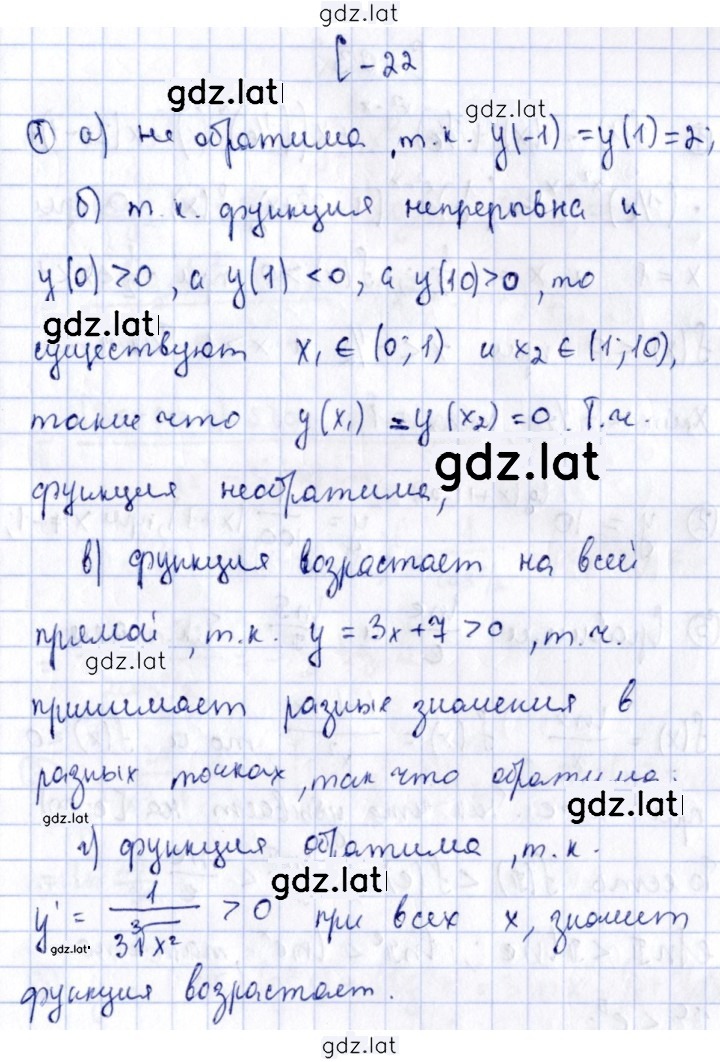 gdz.lat
С-22
gdz.lat
① а) не обратима, т.к. y(-1) = y(1) = 2;
б) т.к. функция непрерывна и
y(0)>0, а y(1)<0, а y(10)>0, то
gdz.lat
существуют x₁ ∈ (0;1) и x₂ ∈ (1;10),
такие что y(x₁) = y(x₂) = 0. Т.ч.
gdz.lat
функция необратима;
в) функция возрастает на всей
прямой, т.к. y = 3x+7 >0, т.ч.
gdz.lat
принимает разные значения в
разных точках, так что обратима;
gdz.lat
gdz.lat
г) функция обратима, т.к.
gdz.lat
y' = 1/(3∛x²) > 0 при всех x, значит
gdz.lat
функция возрастает.
gdz.lat